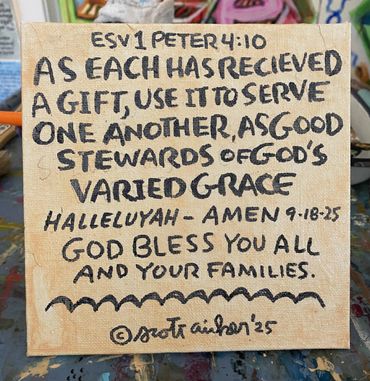 ESV 1 PETER 4:10
AS EACH HAS RECIEVED
A GIFT, USE IT TO SERVE
ONE ANOTHER, AS GOOD
STEWARDS OF GOD'S
VARIED GRACE
HALLELUYAH - AMEN 9-18-25
GOD BLESS YOU ALL
AND YOUR FAMILIES.
© '25